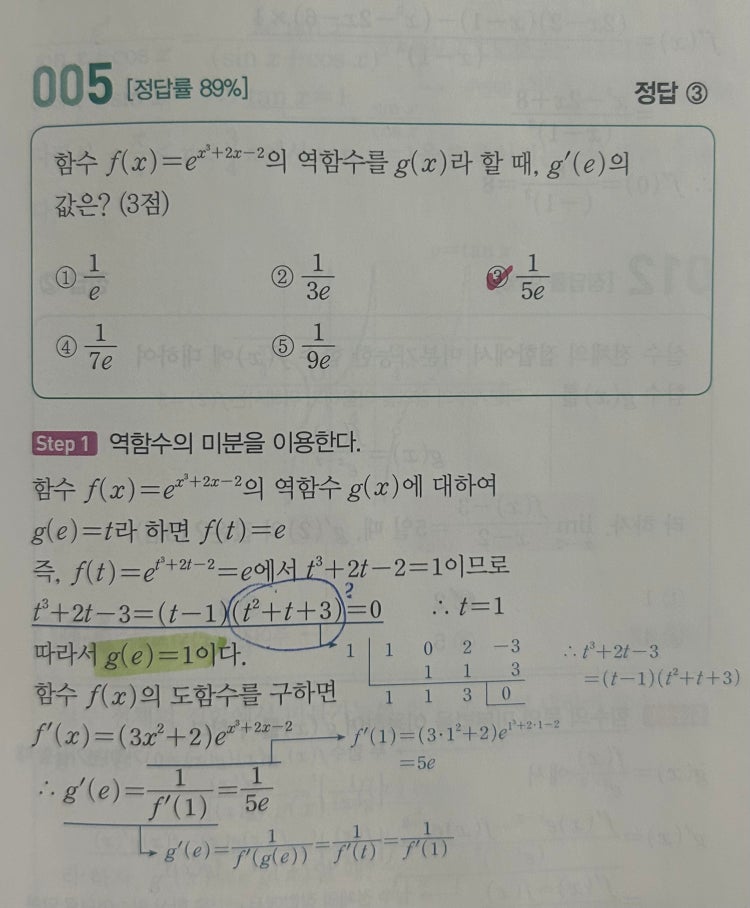 005 [정답률 89%] 정답 ③
함수 f(x)=e^{x³+2x−2}의 역함수를 g(x)라 할 때, g′(e)의
값은? (3점)
① 1/e ② 1/3e ③ 1/5e
④ 1/7e ⑤ 1/9e
Step 1 역함수의 미분을 이용한다.
함수 f(x)=e^{x³+2x−2}의 역함수 g(x)에 대하여
g(e)=t라 하면 f(t)=e
즉, f(t)=e^{t³+2t−2}=e에서 t³+2t−2=1이므로
t³+2t−3=(t−1)(t²+t+3)=0 ∴ t=1
?
따라서 g(e)=1이다.
1 | 1 0 2 −3
1 1 3
1 1 3 0
∴ t³+2t−3
=(t−1)(t²+t+3)
함수 f(x)의 도함수를 구하면
f′(x)=(3x²+2)e^{x³+2x−2}
f′(1)=(3·1²+2)e^{1³+2·1−2}
=5e
∴ g′(e)=1/f′(1)=1/5e
g′(e)=1/f′(g(e))=1/f′(t)=1/f′(1)